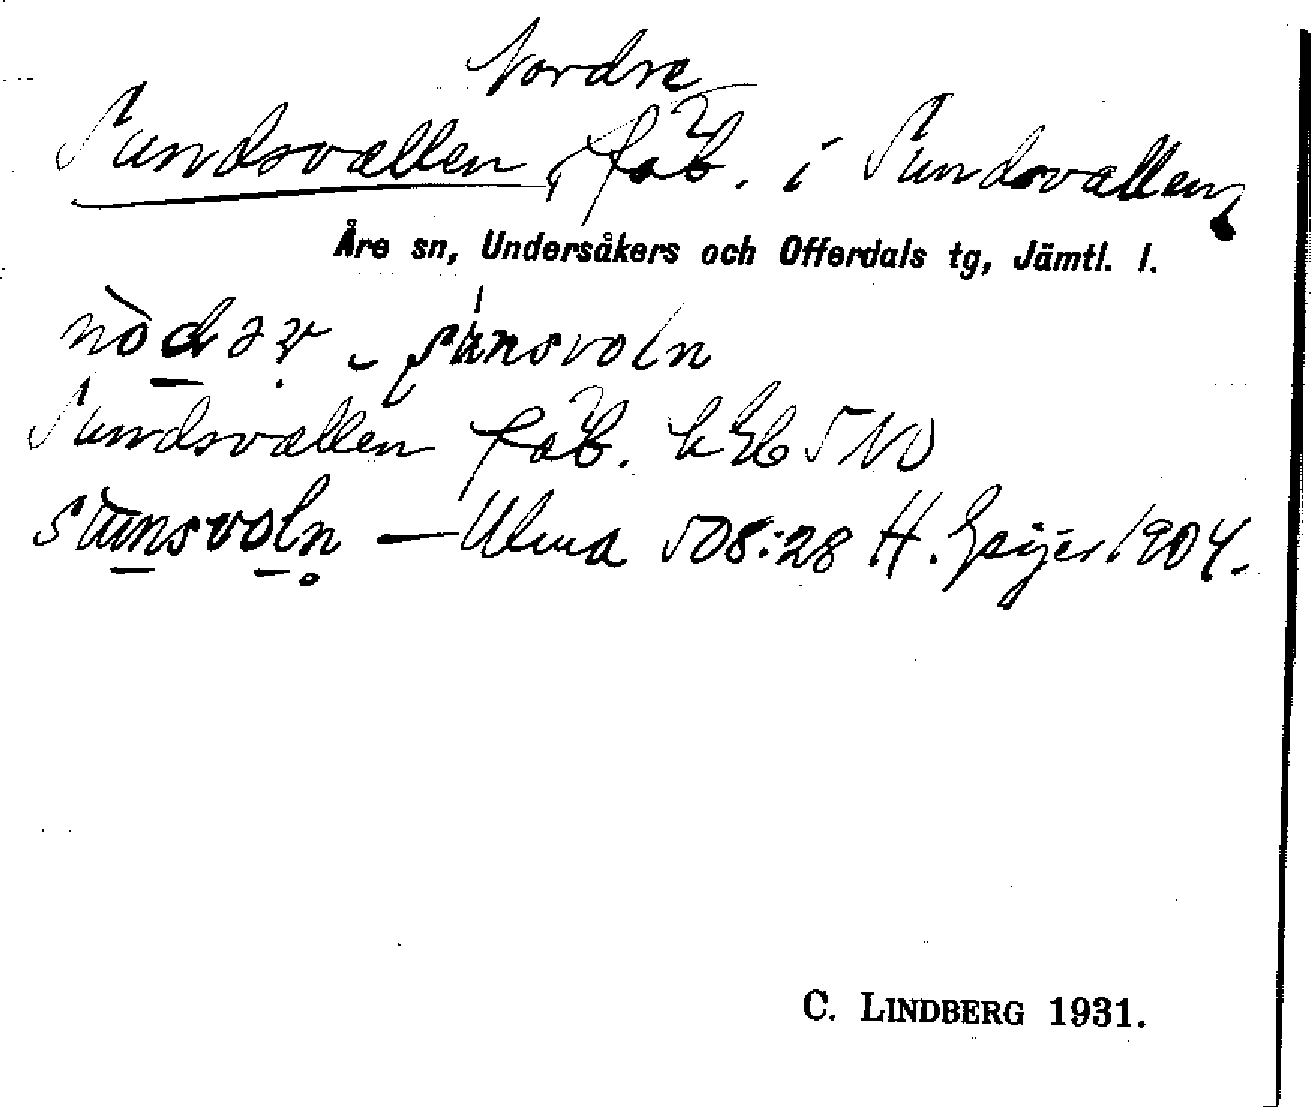 Nordre
Sundsvallen, fäb. i Sundsvallen,
Åre sn, Undersåkers och Offerdals tg, Jämtl. l.
sunsvoln
Sundsvallen fäb. 5 NO
sunsvoln — Ulma 508:28 H. Geijer 1904.
C. LINDBERG 1931.